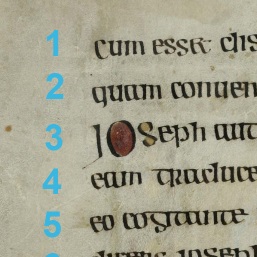 1 cum esset dis
2 quam conuen
3 Ioseph aut
4 eam traduce
5 eo cogitante